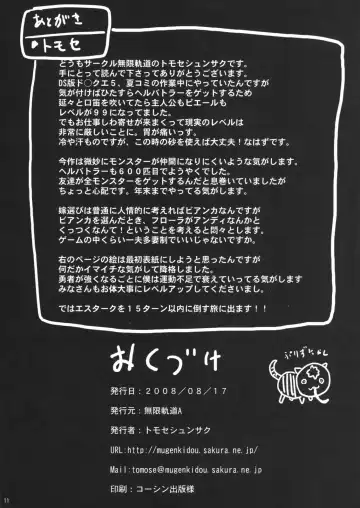 あとがき
・トモセ
どうもサークル無限軌道のトモセシュンサクです。
手にとって読んで下さってありがとうございます。
DS版ド○クエ5、夏コミの作業中にやっていたんですが
気が付けばひたすらヘルバトラーをゲットするため
延々と口笛を吹いてたら主人公もピエールも
レベルが99になってました。
でもお仕事しわ寄せが来まくって現実のレベルは
非常に厳しいことに。胃が痛いっす。
冷や汗ものですが、この時の砂を使えば大丈夫!なはずです。
今作は微妙にモンスターが仲間になりにくいような気がします。
ヘルバトラーも600匹目でようやくでした。
友達が全モンスターをゲットするんだと息巻いていましたが
ちょっと心配です。年末までやってる気がします。
嫁選びは普通に人情的に考えればビアンカなんですが
ビアンカを選んだとき、フローラがアンディなんかと
くっつくなんて!ということを考えると悶々とします。
ゲームの中くらい一夫多妻制でいいじゃないですか。
右のページの絵は最初表紙にしようと思ったんですが
何だかイマイチな気がして降格しました。
勇者が強くなるごとに僕は運動不足で衰えていってる気がします
みなさんもお体大事にレベルアップしてくださいまし。
ではエスタークを15ターン以内に倒す旅に出ます!!
おくづけ
ぷりずにゃん
発行日:2008/08/17
発行元:無限軌道A
発行者:トモセシュンサク
URL:http://mugenkidou.sakura.ne.jp/
Mail:tomose@mugenkidou.sakura.ne.jp
印刷:コーシン出版様